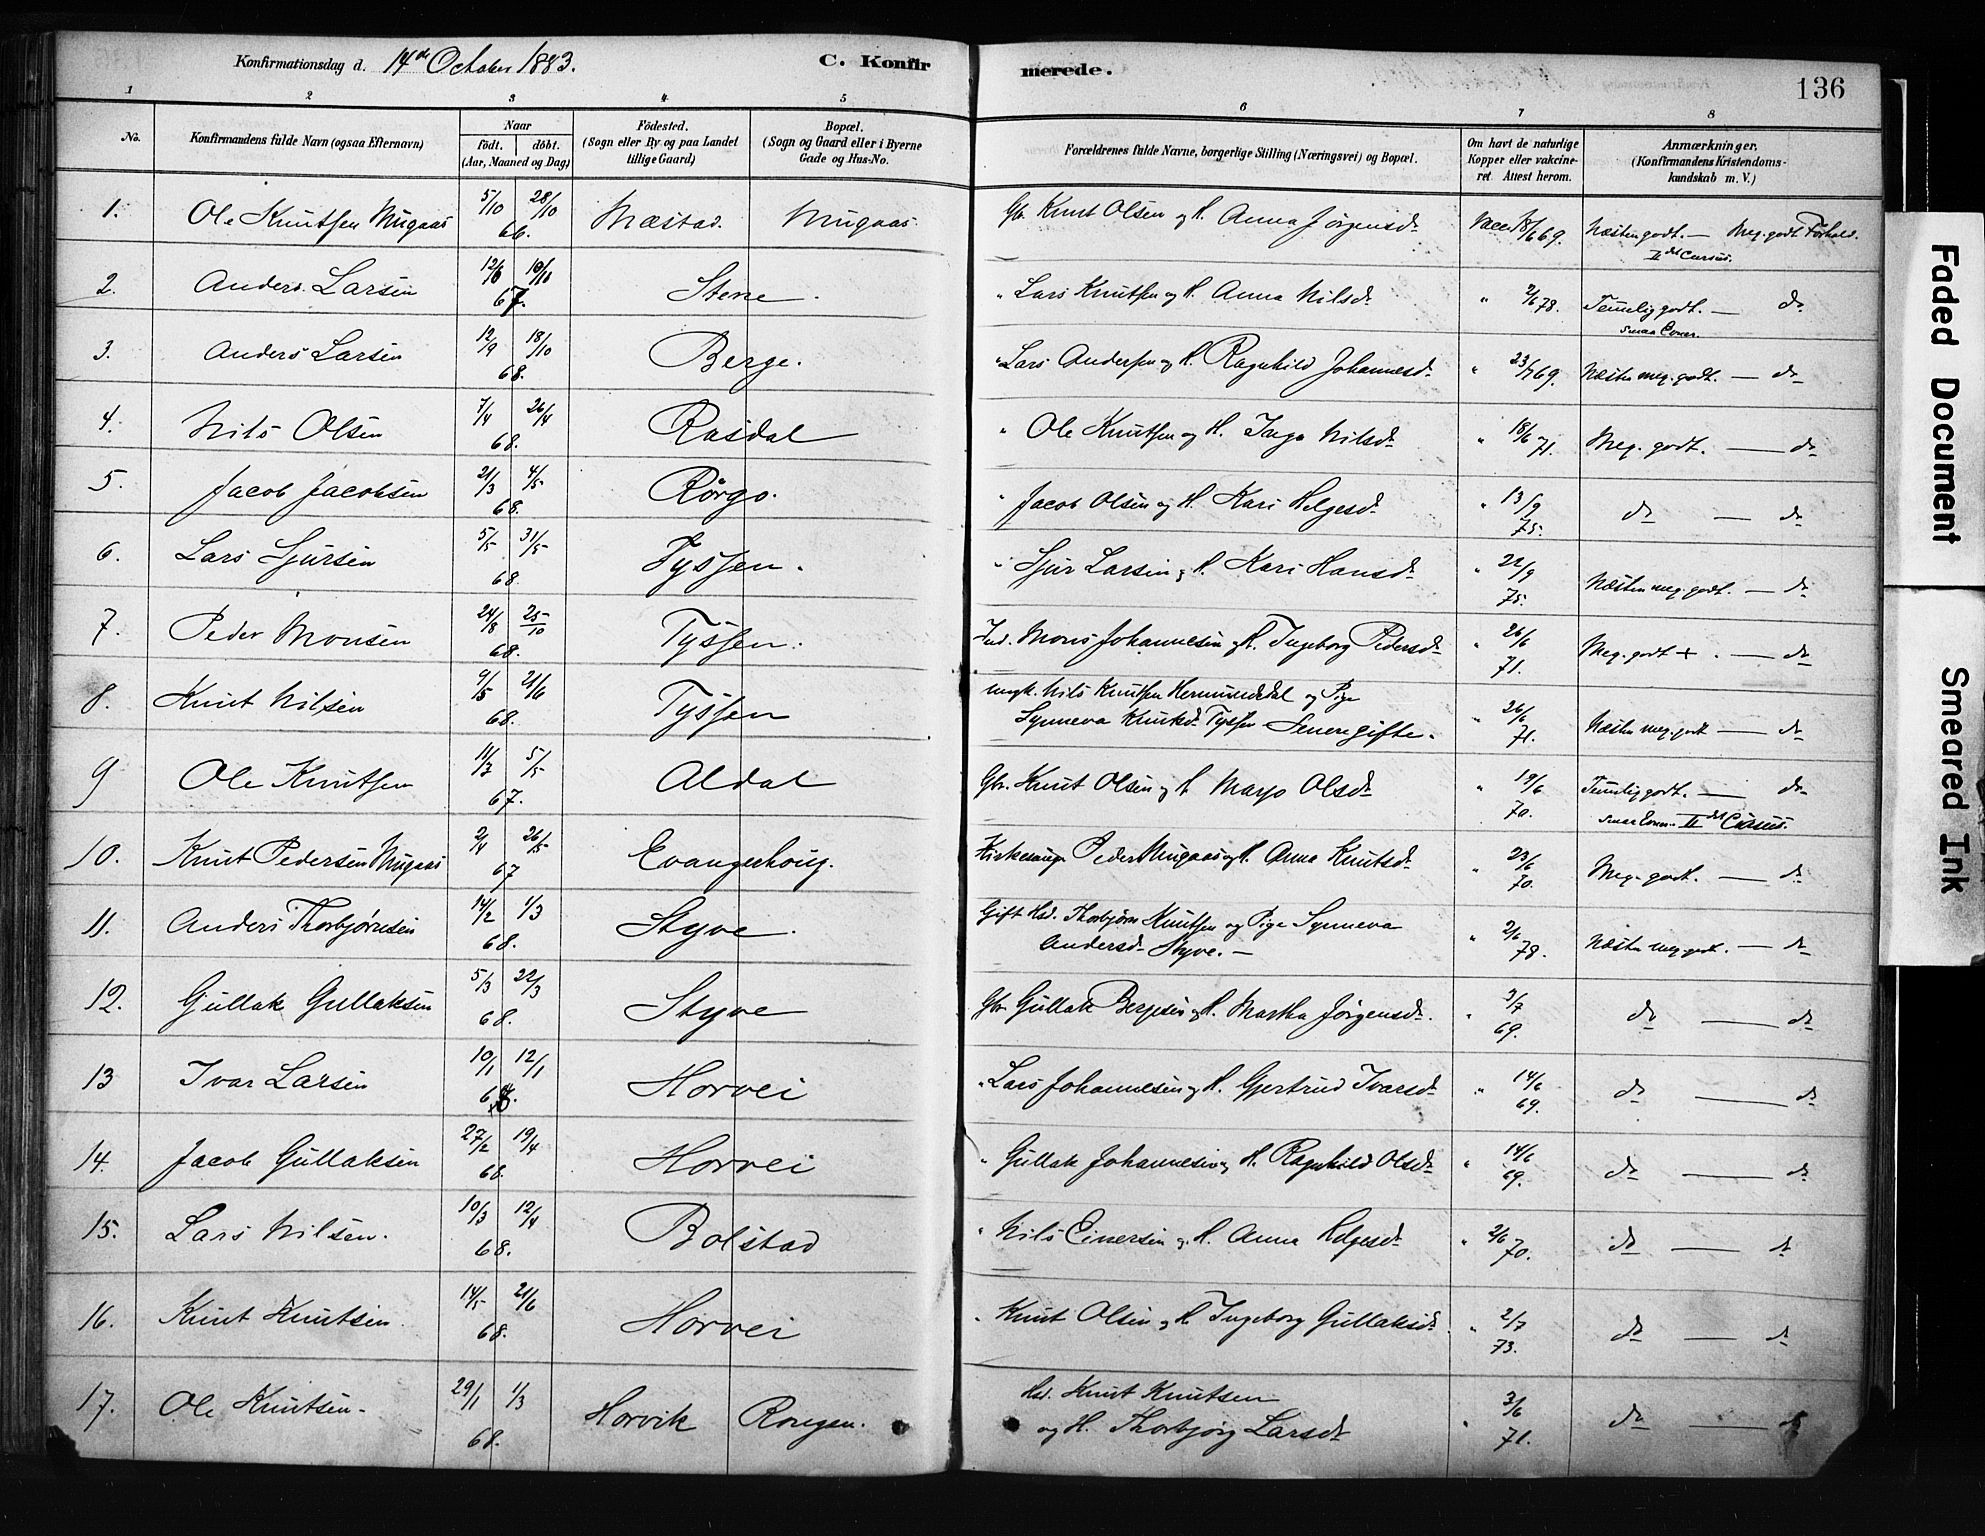 Konfirmationsdag d. 14de October 1883. C. Konfirmerede. 136
1 2 3 4 5 6 7 8
No. Konfirmandens fulde Navn (ogsaa Efternavn) Naar født. døbt. (Aar, Maaned og Dag) Fødested. (Sogn eller By og paa Landet tillige Gaard) Bopæl. (Sogn og Gaard eller i Byerne Gade og Hus-No. Forældrenes fulde Navne, borgerlige Stilling (Næringsvei) og Bopæl. Om havt de naturlige Kopper eller vakcineret. Attest herom. Anmærkninger. (Konfirmandens Kristendomskundskab m. V.)
1. Ole Knutsen Mugaas 5/10 28/10 66. Mæstad. Mugaas. Gbr. Knut Olsen og H. Anna Jørgensdr Vacc 18/6 69. Næsten godt. — Meg. godt Forhold. IIdet Cursus.
2. Anders Larsen 67. Stene. " Lars Knutsen og H. Anna Nilsdr " 2/6 78. Temmelig godt. — do
3. Anders Larsen 12/9 18/10 68. Berge. " Lars Andersen og H. Ragnhild Johannesdr " 69. Næsten meg. godt. — do
4. Nils Olsen 7/4 26/4 68. Rasdal " Ole Knutsen og H. Inga Nilsdr " 18/6 71. Meg. godt. — do
5. Jacob Jacobsen 21/3 4/5 68. Rørgo. " Jacob Olsen og H. Kari Helgesdr " 13/9 75. do — do
6. Lars Sjursen 5/5 31/5 68. Tyssen. " Sjur Larsen og H. Kari Hansdr " 22/9 75. Næsten meg. godt. — do
7. Peder Monsen 24/8 25/10 68. Tyssen. Ind. Mons Johannesen og H. Ingeborg Pedersdr " 26/6 71. Meg. godt + . — do
8. Knut Nilsen 9/5 21/6 68. Tyssen Ungk. Nils Knutsen Hermundsdal og Pige
Synneva Knutsdr Tyssen Senere gifte. " 26/6 71. Næsten meg. godt — do
9 Ole Knutsen 11/3 5/5 67. Aldal Gbr. Knut Olsen og H. Marjo Olsdr " 19/6 70. Temmelig godt. — do
IIdet Cursus.
10. Knut Pedersen Mugaas 2/4 26/5 67 Evangerhoug. Kirkesanger Peder Mugaas og H. Anna Knutsdr " 23/6 70. Meg. godt. — do
11. Anders Thorbjørnsen 14/2 1/3 68. Styve. Gift Hsd. Thorbjørn Knutsen og Pige Synneva
Andersdr Styve. — " 2/6 78. Næsten meg. godt. — do
12. Gullak Gullaksen 5/3 22/3 68. Styve Gbr Gullak Bergesen og H. Martha Jørgensdr. " 3/7 69. do — do
13 Ivar Larsen 10/1 12/1 68. Horvei " Lars Johannesen og H. Gjertrud Ivarsdr " 14/6 69. do — do
14. Jacob Gullaksen 27/2 19/4 68. Horvei " Gullak Johannesen og H. Ragnhild Olsdr " 14/6 69. do — do
15. Lars Nilsen. 10/3 12/4 68. Bolstad " Nils Einersen og H. Anna Helgesdr " 2/6 70. do — do
16. Knut Knutsen 14/5 21/6 68. Horvei " Knut Olsen og H. Ingeborg Gullaksdr " 2/7 73. do — do
17. Ole Knutsen. 29/1 1/3 68. Horvik Rongen. Hsd. Knut Knutsen
og H. Thorbjørg Larsdr " 3/6 71. do — do
Faded Document
Smeared Ink